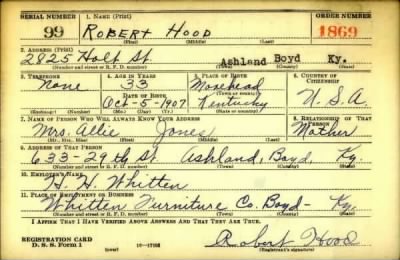 SERIAL NUMBER 1. NAME (Print) ORDER NUMBER
99 ROBERT HOOD 1869
(First) (Middle) (Last)
2. ADDRESS (Print)
2825 Holt St. Ashland Boyd Ky.
(Number and street or R. F. D. number) (Town) (County) (State)
3. TELEPHONE 4. AGE IN YEARS 5. PLACE OF BIRTH 6. COUNTRY OF CITIZENSHIP
None 33 Morehead
DATE OF BIRTH
Oct-5-1907 Kentucky U.S.A.
(Exchange) (Number) (Mo.) (Day) (Yr.) (State or country)
7. NAME OF PERSON WHO WILL ALWAYS KNOW YOUR ADDRESS 8. RELATIONSHIP OF THAT PERSON
Mrs. Allie Jones Mother
(Mr., Mrs., Miss) (First) (Middle) (Last)
9. ADDRESS OF THAT PERSON
633-29th St. Ashland, Boyd, Ky.
(Number and street or R. F. D. number) (Town) (County) (State)
10. EMPLOYER'S NAME
H. H. Whitten
11. PLACE OF EMPLOYMENT OR BUSINESS
Whitten Furniture Co. Boyd- Ky.
(Number and street or R. F. D. number) (Town) (County) (State)
I AFFIRM THAT I HAVE VERIFIED ABOVE ANSWERS AND THAT THEY ARE TRUE.
REGISTRATION CARD
D. S. S. Form 1 (over) Robert Hood
(Registrant's signature)